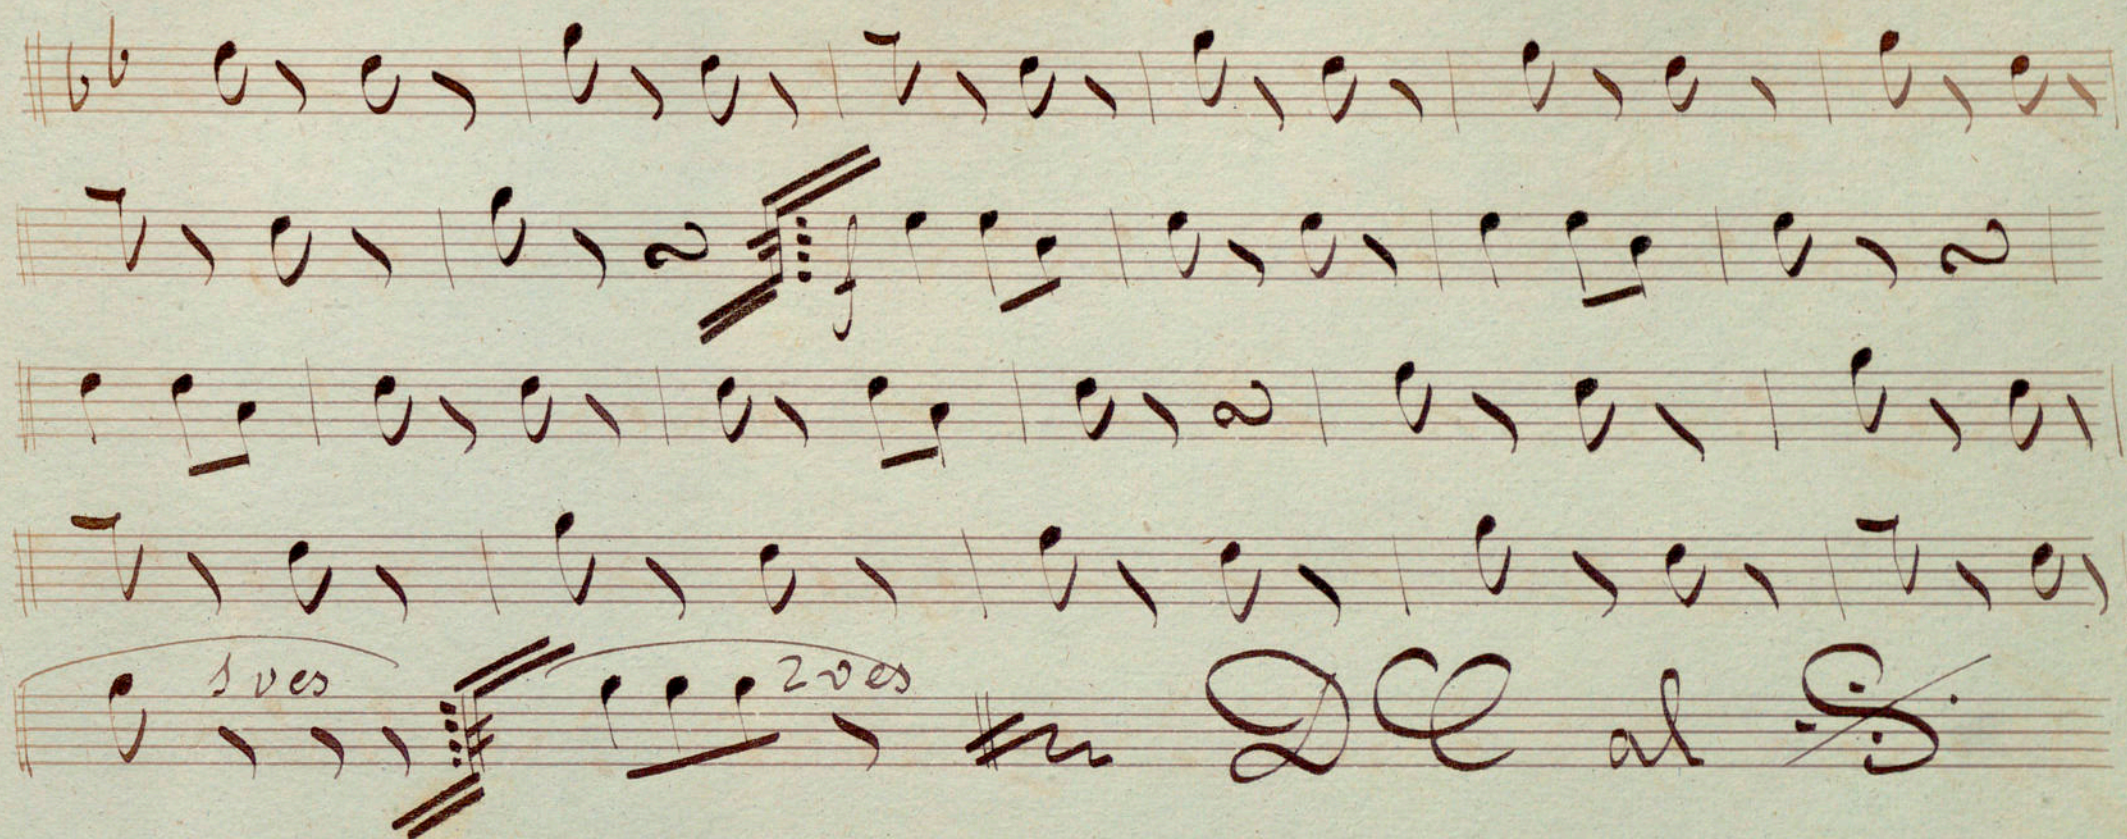 f
1 ves 2 ves DC al 𝄋